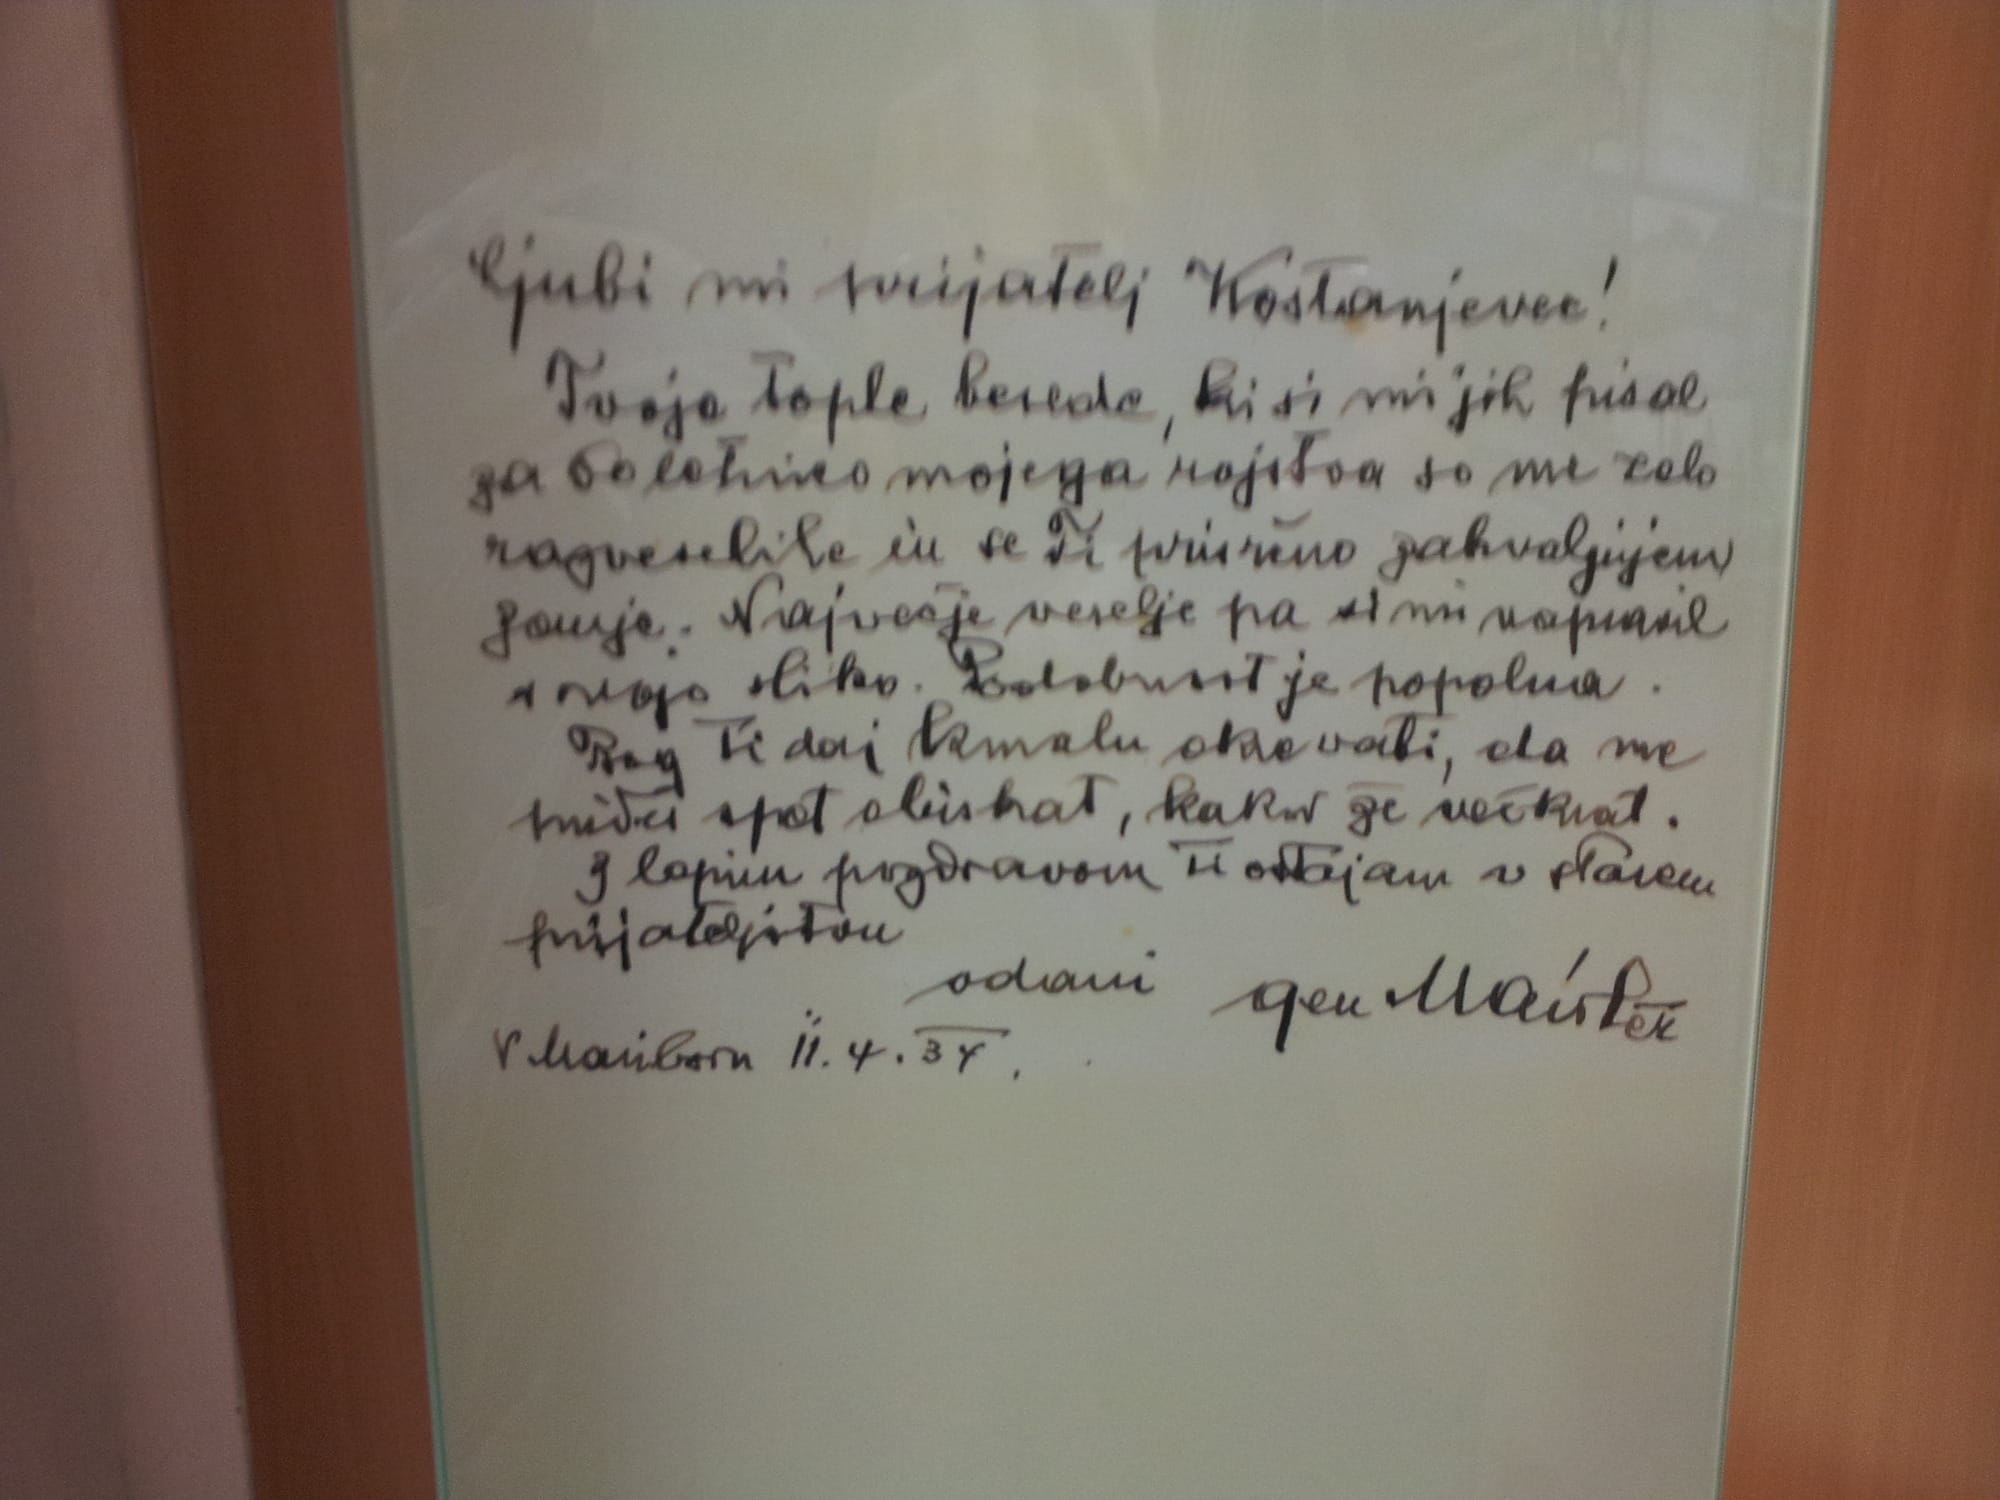 Ljubi mi prijatelj Kostanjevec!
Tvoje tople besede, ki si mi jih pisal
za 60 letnico mojega rojstva so me zelo
razveselile in se Ti prisrčno zahvaljujem
zanje. Največje veselje pa si mi napravil
s svojo sliko. Podobnost je popolna.
Bog Ti daj kmalu okrevati, da me
prideš spet obiskat, kakor že večkrat.
Z lepim pozdravom Ti ostajam v starem
prijateljstvu
odani gen Maister
V Mariboru 11.4.34.